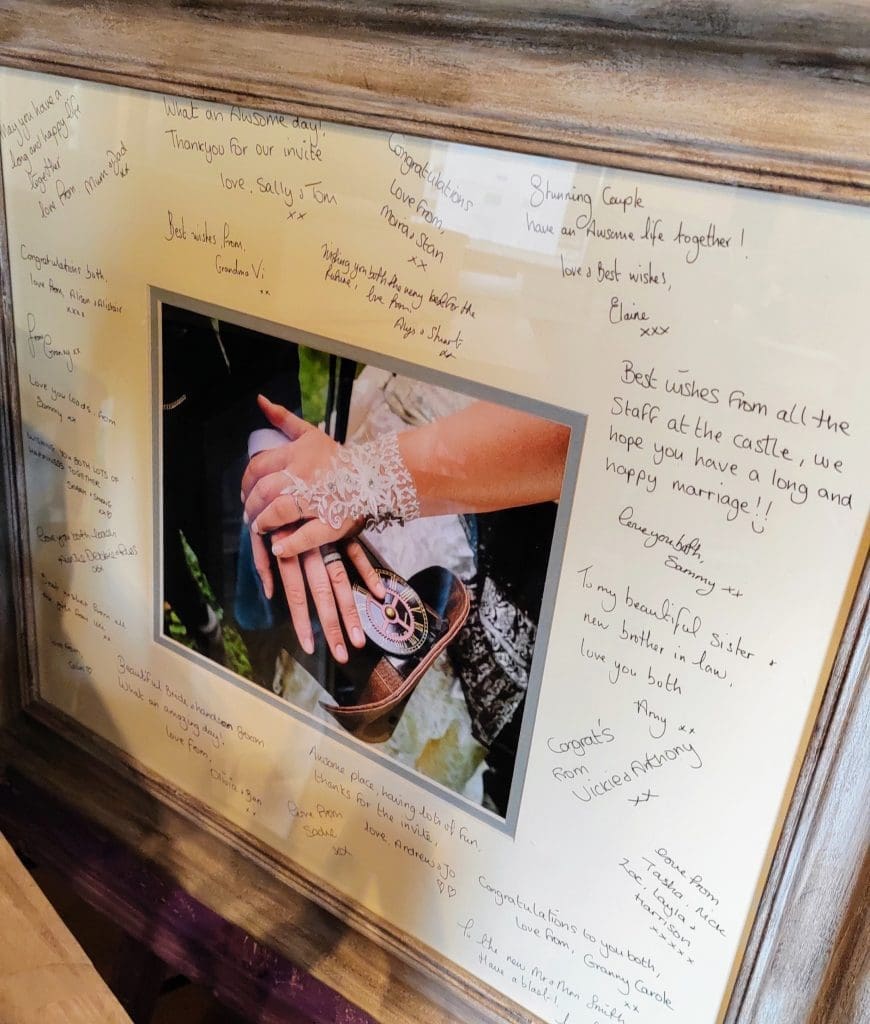 May you have a
long and happy life
together
love from Mum & Dad
xx
What an Awsome day!
Thankyou for our invite
love, Sally & Tom
xx
Congratulations
love from,
Moira & Stan
xx
Stunning Couple
have an Awsome life together!
love & Best wishes,
Elaine
xxx
Best wishes, from,
Grandma Vi
xx
Wishing you both the very best for the
future, love from
& Stuart
xx
Congratulations both,
love from, Alison & Alistair
xxx
from Granny xx
Love you loads, from
Sammy xx
WISHING YOU BOTH LOTS OF
HAPPINESS TOGETHER
SARAH &
Love you both
Best wishes from all
love from,
Best wishes from all the
Staff at the castle, we
hope you have a long and
happy marriage!!
love you both,
Sammy xx
To my beautiful sister &
new brother in law,
love you both
Amy xx
Congrat's
from
Vickie & Anthony
xx
Beautiful Bride & handsom Groom
What an amazing day!
love from,
Olivia & Ben
xx
Awsome place, having lots of fun,
thanks for the invite,
love, Andrew & Jo
♡♡
love from
Sadie
love from
Tasha, Nick
Zoe, Layla &
Harrison
xxxxx
Congratulations to you both,
love from, Granny Carole
xx
To the new Mr & Mrs Smith
Have a blast!